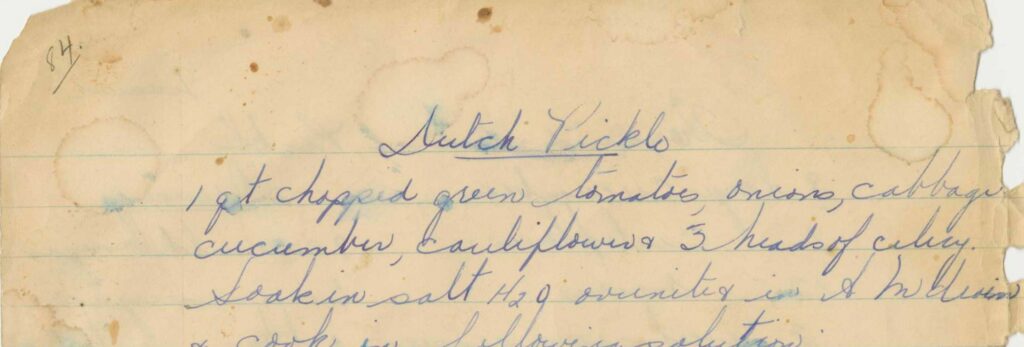 84.
Dutch Pickle
1 qt chopped green tomatoes, onions, cabbage
cucumber, cauliflower & 3 heads of celery.
Soak in salt H2O overnite & in A M drain
& cook in following solution